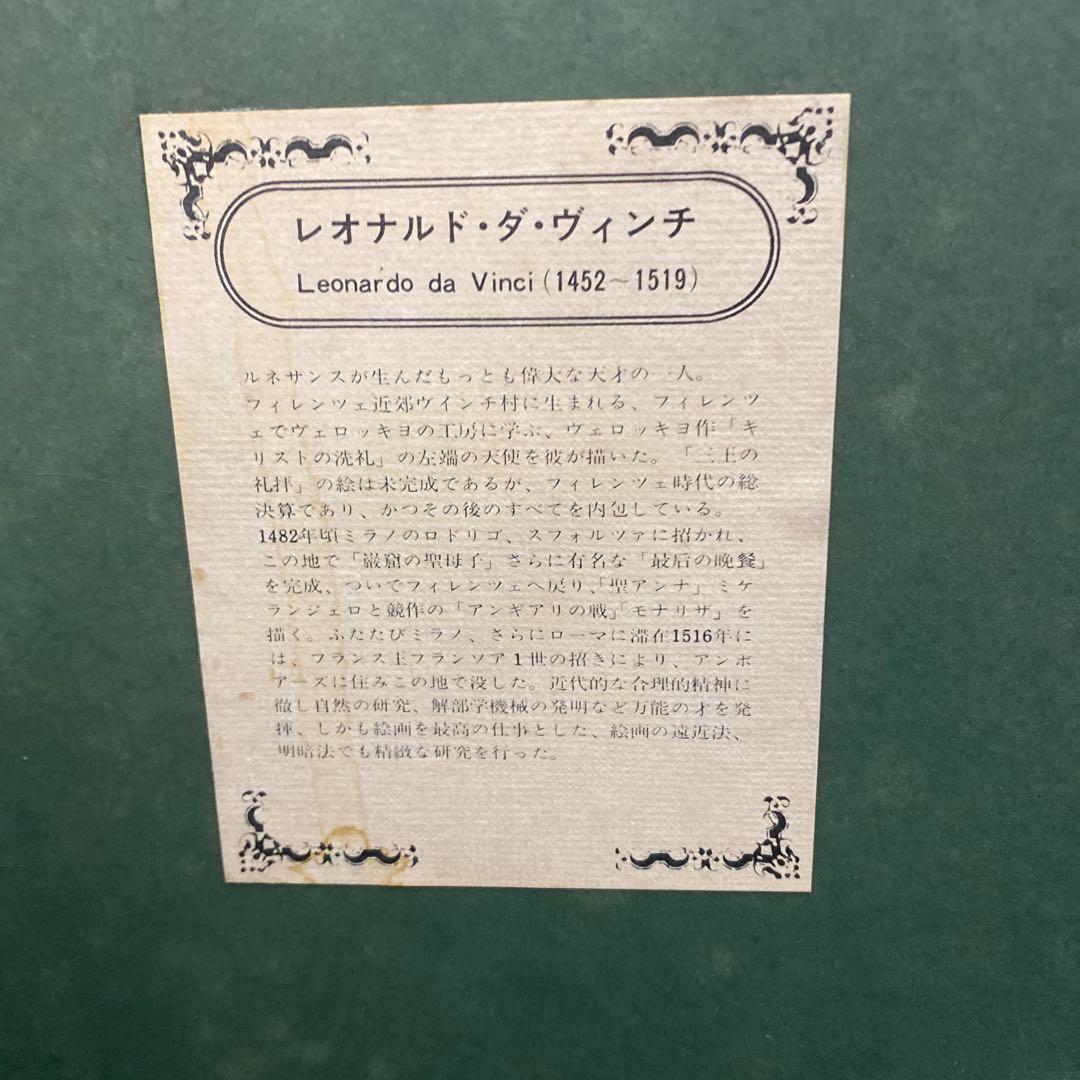 レオナルド・ダ・ヴィンチ
Leonardo da Vinci（1452〜1519）
ルネサンスが生んだもっとも偉大な天才の一人。
フィレンツェ近郊ヴインチ村に生まれる、フィレンツ
ェでヴェロッキヨの工房に学ぶ、ヴェロッキヨ作「キ
リストの洗礼」の左端の天使を彼が描いた。「三王の
礼拝」の絵は未完成であるが、フィレンツェ時代の総
決算であり、かつその後のすべてを内包している。
1482年頃ミラノのロドリゴ、スフォルツァに招かれ、
この地で「巌窟の聖母子」さらに有名な「最后の晩餐」
を完成、ついでフィレンツェへ戻り、「聖アンナ」ミケ
ランジェロと競作の「アンギアリの戦」「モナリザ」を
描く。ふたたびミラノ、さらにローマに滞在1516年に
は、フランス王フランソア1世の招きにより、アンボ
アーズに住みこの地で没した。近代的な合理的精神に
徹し自然の研究、解部学機械の発明など万能の才を発
揮、しかも絵画を最高の仕事とした、絵画の遠近法、
明暗法でも精緻な研究を行った。